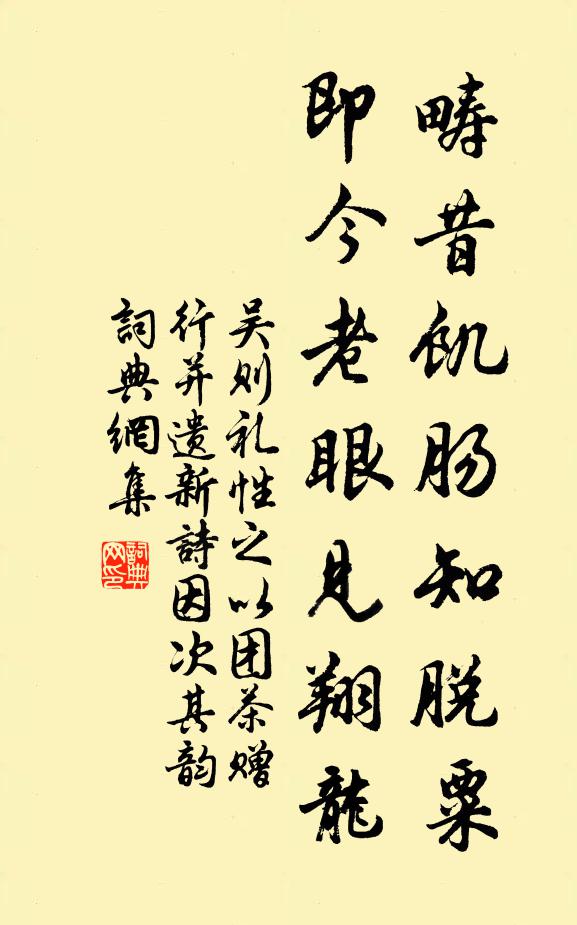 畴昔飢肠知脱粟
即今老眼見翔龍
吴则礼性之以团茶赠
行并遗新詩因次其韵
詞典網集
詞典网印